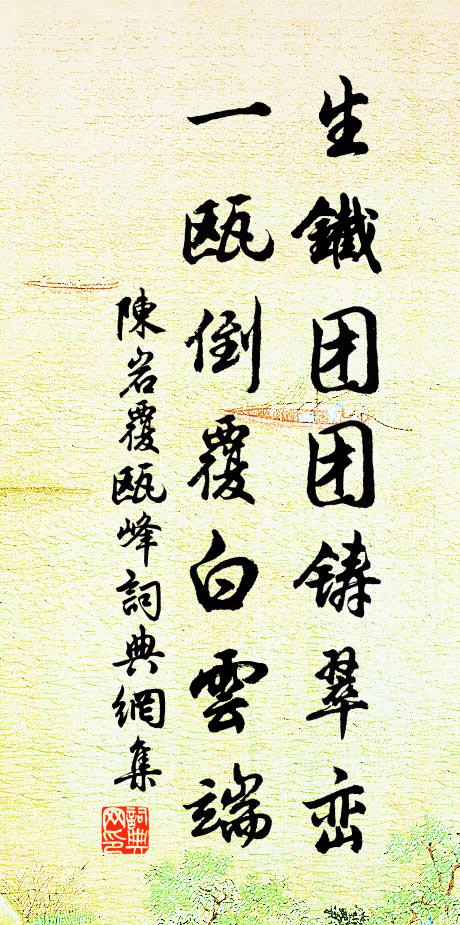 生鐵团团铸翠峦
一瓯倒覆白雲端
陳岩覆瓯峰詞典網集
詞典网印